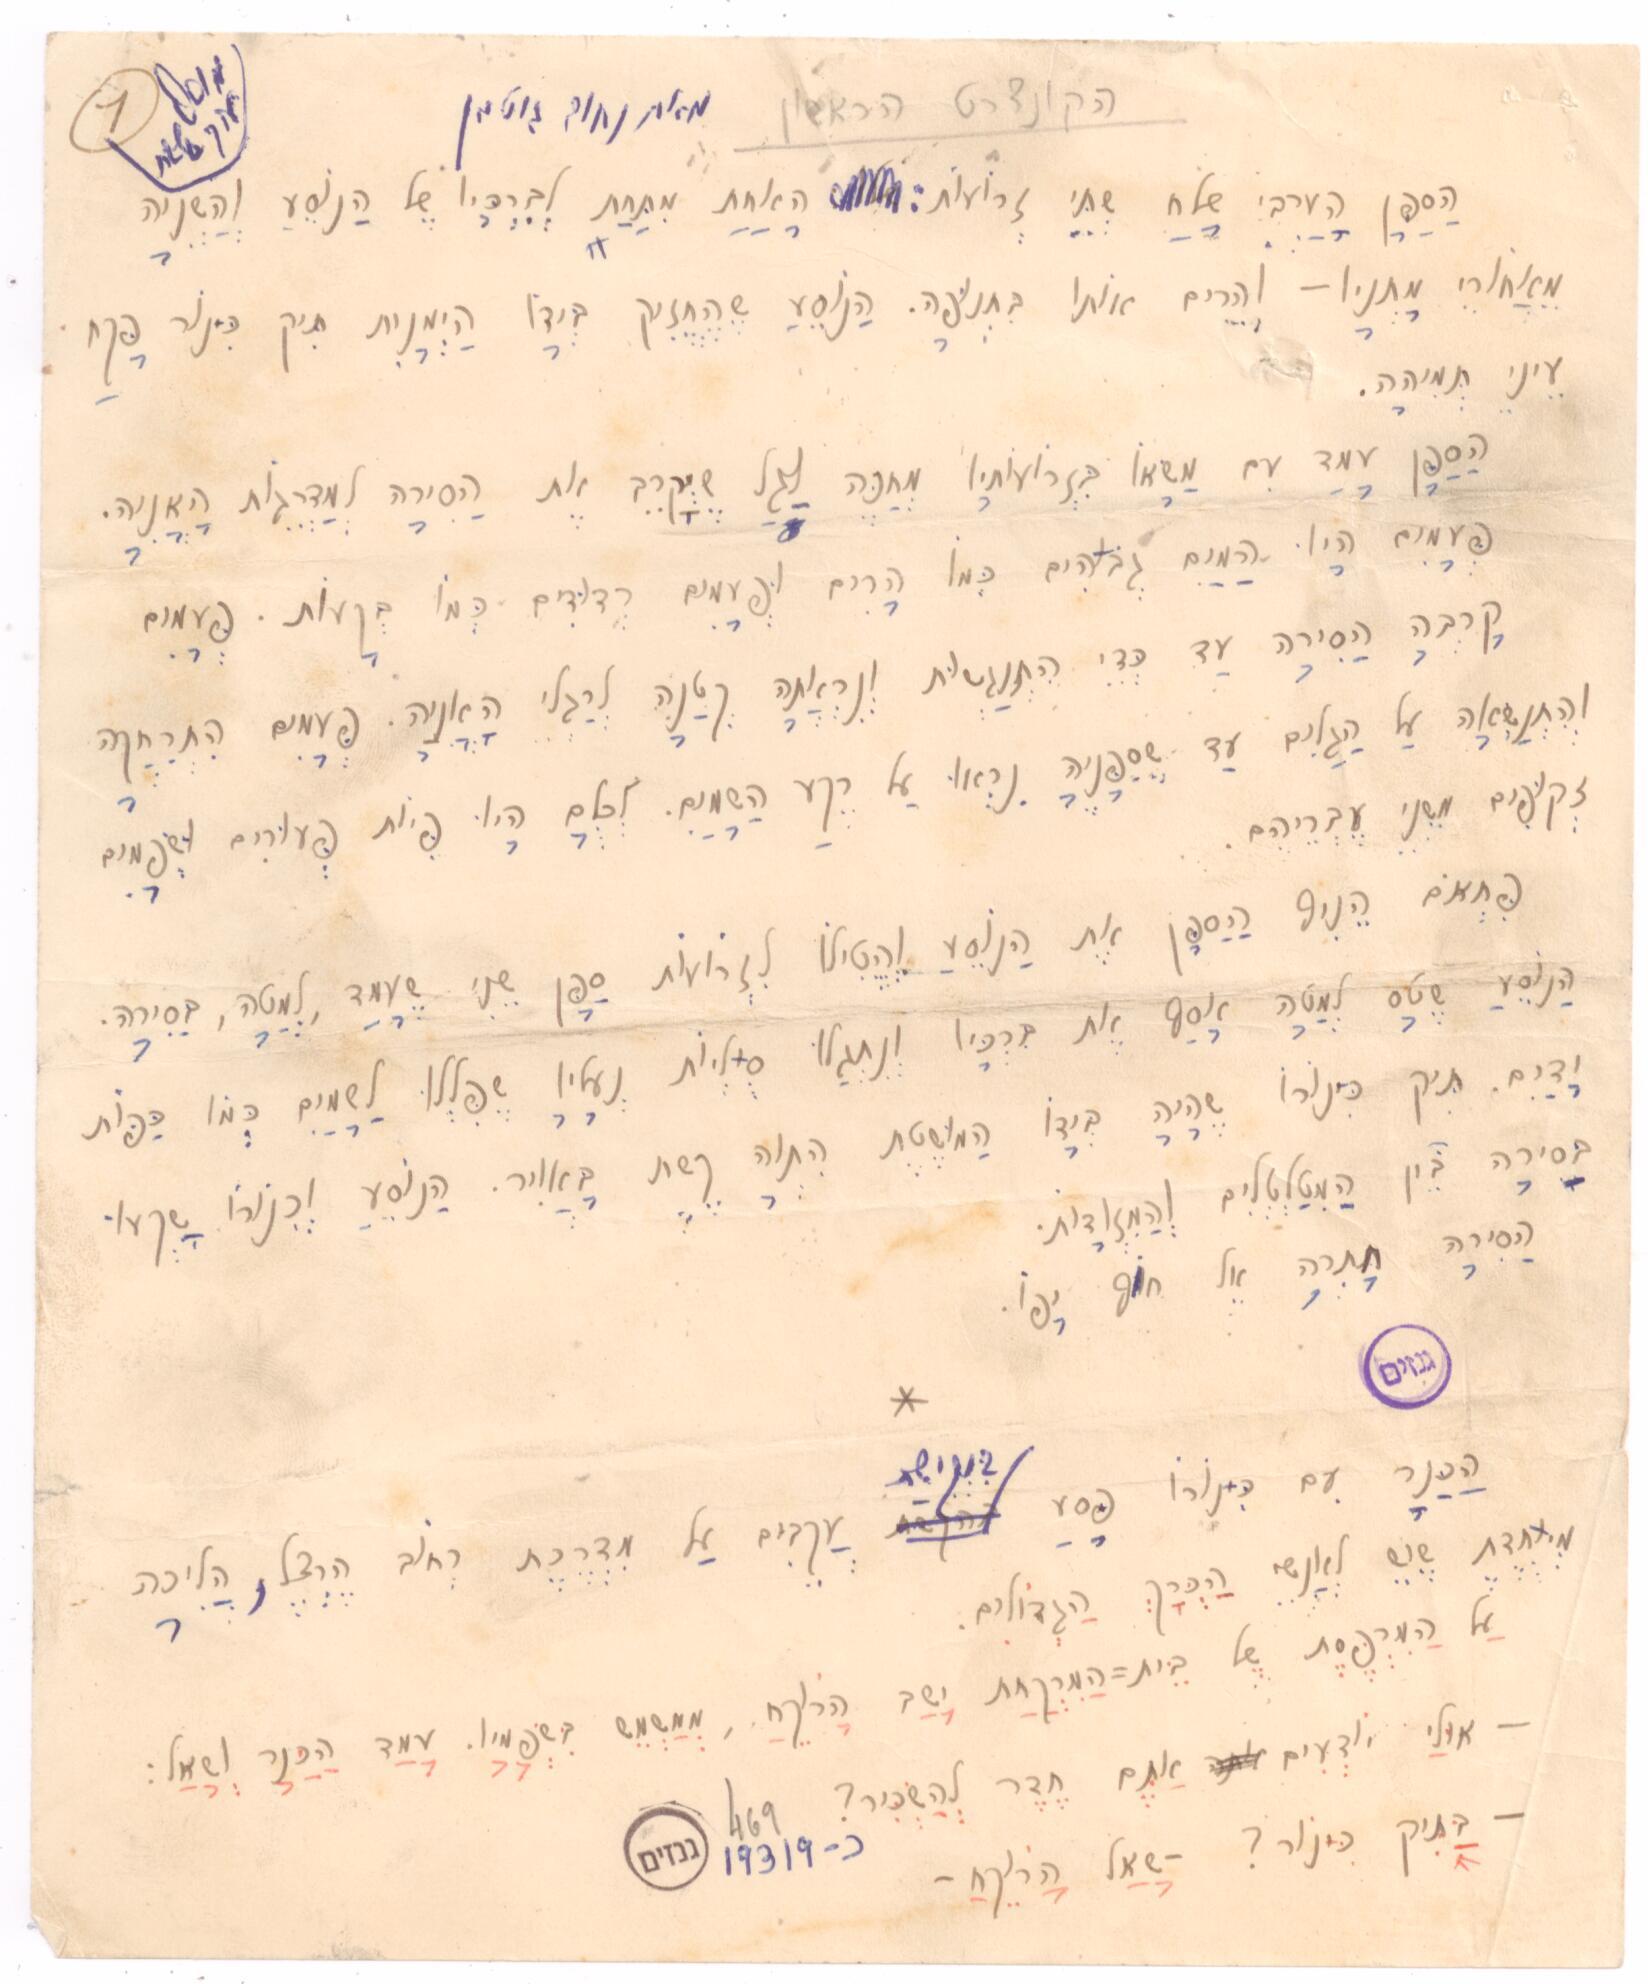 הקונצרט הראשון מאת נחום גוטמן
1
הַסַּפָּן הָעֲרָבִי שָׁלַח שְׁתֵּי זְרוֹעוֹת: הָאַחַת מִתַּחַת לְבִרְכָּיו שֶׁל הַנּוֹסֵעַ וְהַשְּׁנִיָּה
מֵאֲחוֹרֵי מָתְנָיו – וְהֵרִים אוֹתוֹ בִּתְנוּפָה. הַנּוֹסֵעַ שֶׁהֶחֱזִיק בְּיָדוֹ הַיְמָנִית תִּיק כִּנּוֹר פָּקַח
עֵינֵי תְּמִיהָה.
הַסַּפָּן עָמַד עִם מַשָּׂאוֹ בִּזְרוֹעוֹתָיו מְחַכֶּה לַגַּל שֶׁיְּקָרֵב אֶת הַסִּירָה לְמַדְרֵגוֹת הָאֳנִיָּה.
פְּעָמִים הָיוּ הַמַּיִם גְּבֹהִים כְּמוֹ הָרִים וּפְעָמִים רְדוּדִים כְּמוֹ בְּקָעוֹת. פְּעָמִים
קָרְבָה הַסִּירָה עַד כְּדֵי הִתְנַגְּשׁוּת וְנִרְאֲתָה קְטַנָּה לְרַגְלֵי הָאֳנִיָּה. פְּעָמִים הִתְרַחֲקָה
וְהִתְנַשְּׂאָה עַל הַגַּלִּים עַד שֶׁסַּפָּנֶיהָ נִרְאוּ עַל רֶקַע הַשָּׁמַיִם. לְכֻלָּם הָיוּ פִּיּוֹת פְּעוּרִים וּשְׂפָמִים
זְקוּפִים מִשְּׁנֵי עֶבְרֵיהֶם.
פִּתְאֹם הֵנִיף הַסַּפָּן אֶת הַנּוֹסֵעַ וֶהֱטִילוֹ לִזְרוֹעוֹת סַפָּן שֵׁנִי שֶׁעָמַד, לְמַטָּה, בַּסִּירָה.
הַנּוֹסֵעַ שֶׁטָּס לְמַטָּה אָסַף אֶת בִּרְכָּיו וְנִתְגַּלּוּ סֻלְיוֹת נְעָלָיו שֶׁפִּלְּלוּ לַשָּׁמַיִם כְּמוֹ כַּפּוֹת
יָדַיִם. תִּיק כִּנּוֹרוֹ שֶׁהָיָה בְּיָדוֹ הַמּוּשֶׁטֶת הִתְוָה קֶשֶׁת בָּאֲוִיר. הַנּוֹסֵעַ וְכִנּוֹרוֹ שָׁקְעוּ
בַּסִּירָה בֵּין הַמִּטַּלְטְלִים וְהַמִּזְוָדוֹת.
הַסִּירָה חָתְרָה אֶל חוֹף יָפוֹ.
גנזים
*
הַכַּנָּר עִם כִּנּוֹרוֹ פָּסַע בִּנְקִישַׁת עֲקֵבִים עַל מִדְרֶכֶת רְחוֹב הֶרְצֶל, הֲלִיכָה
מְיֻחֶדֶת שֶׁיֵּשׁ לְאַנְשֵׁי הַכְּרָךְ הַגְּדוֹלִים.
עַל הַמִּרְפֶּסֶת שֶׁל בֵּית=הַמִּרְקַחַת יָשַׁב הָרוֹקֵחַ, מְמַשְׁמֵשׁ בִּשְׂפָמָיו. עָמַד הַכַּנָּר וְשָׁאַל:
– אוּלַי יוֹדְעִים אַתֶּם חֶדֶר לְהַשְׂכִּיר?
– בַּתִּיק כִּנּוֹר? – שָׁאַל הָרוֹקֵחַ –
469
כ-19319
גנזים